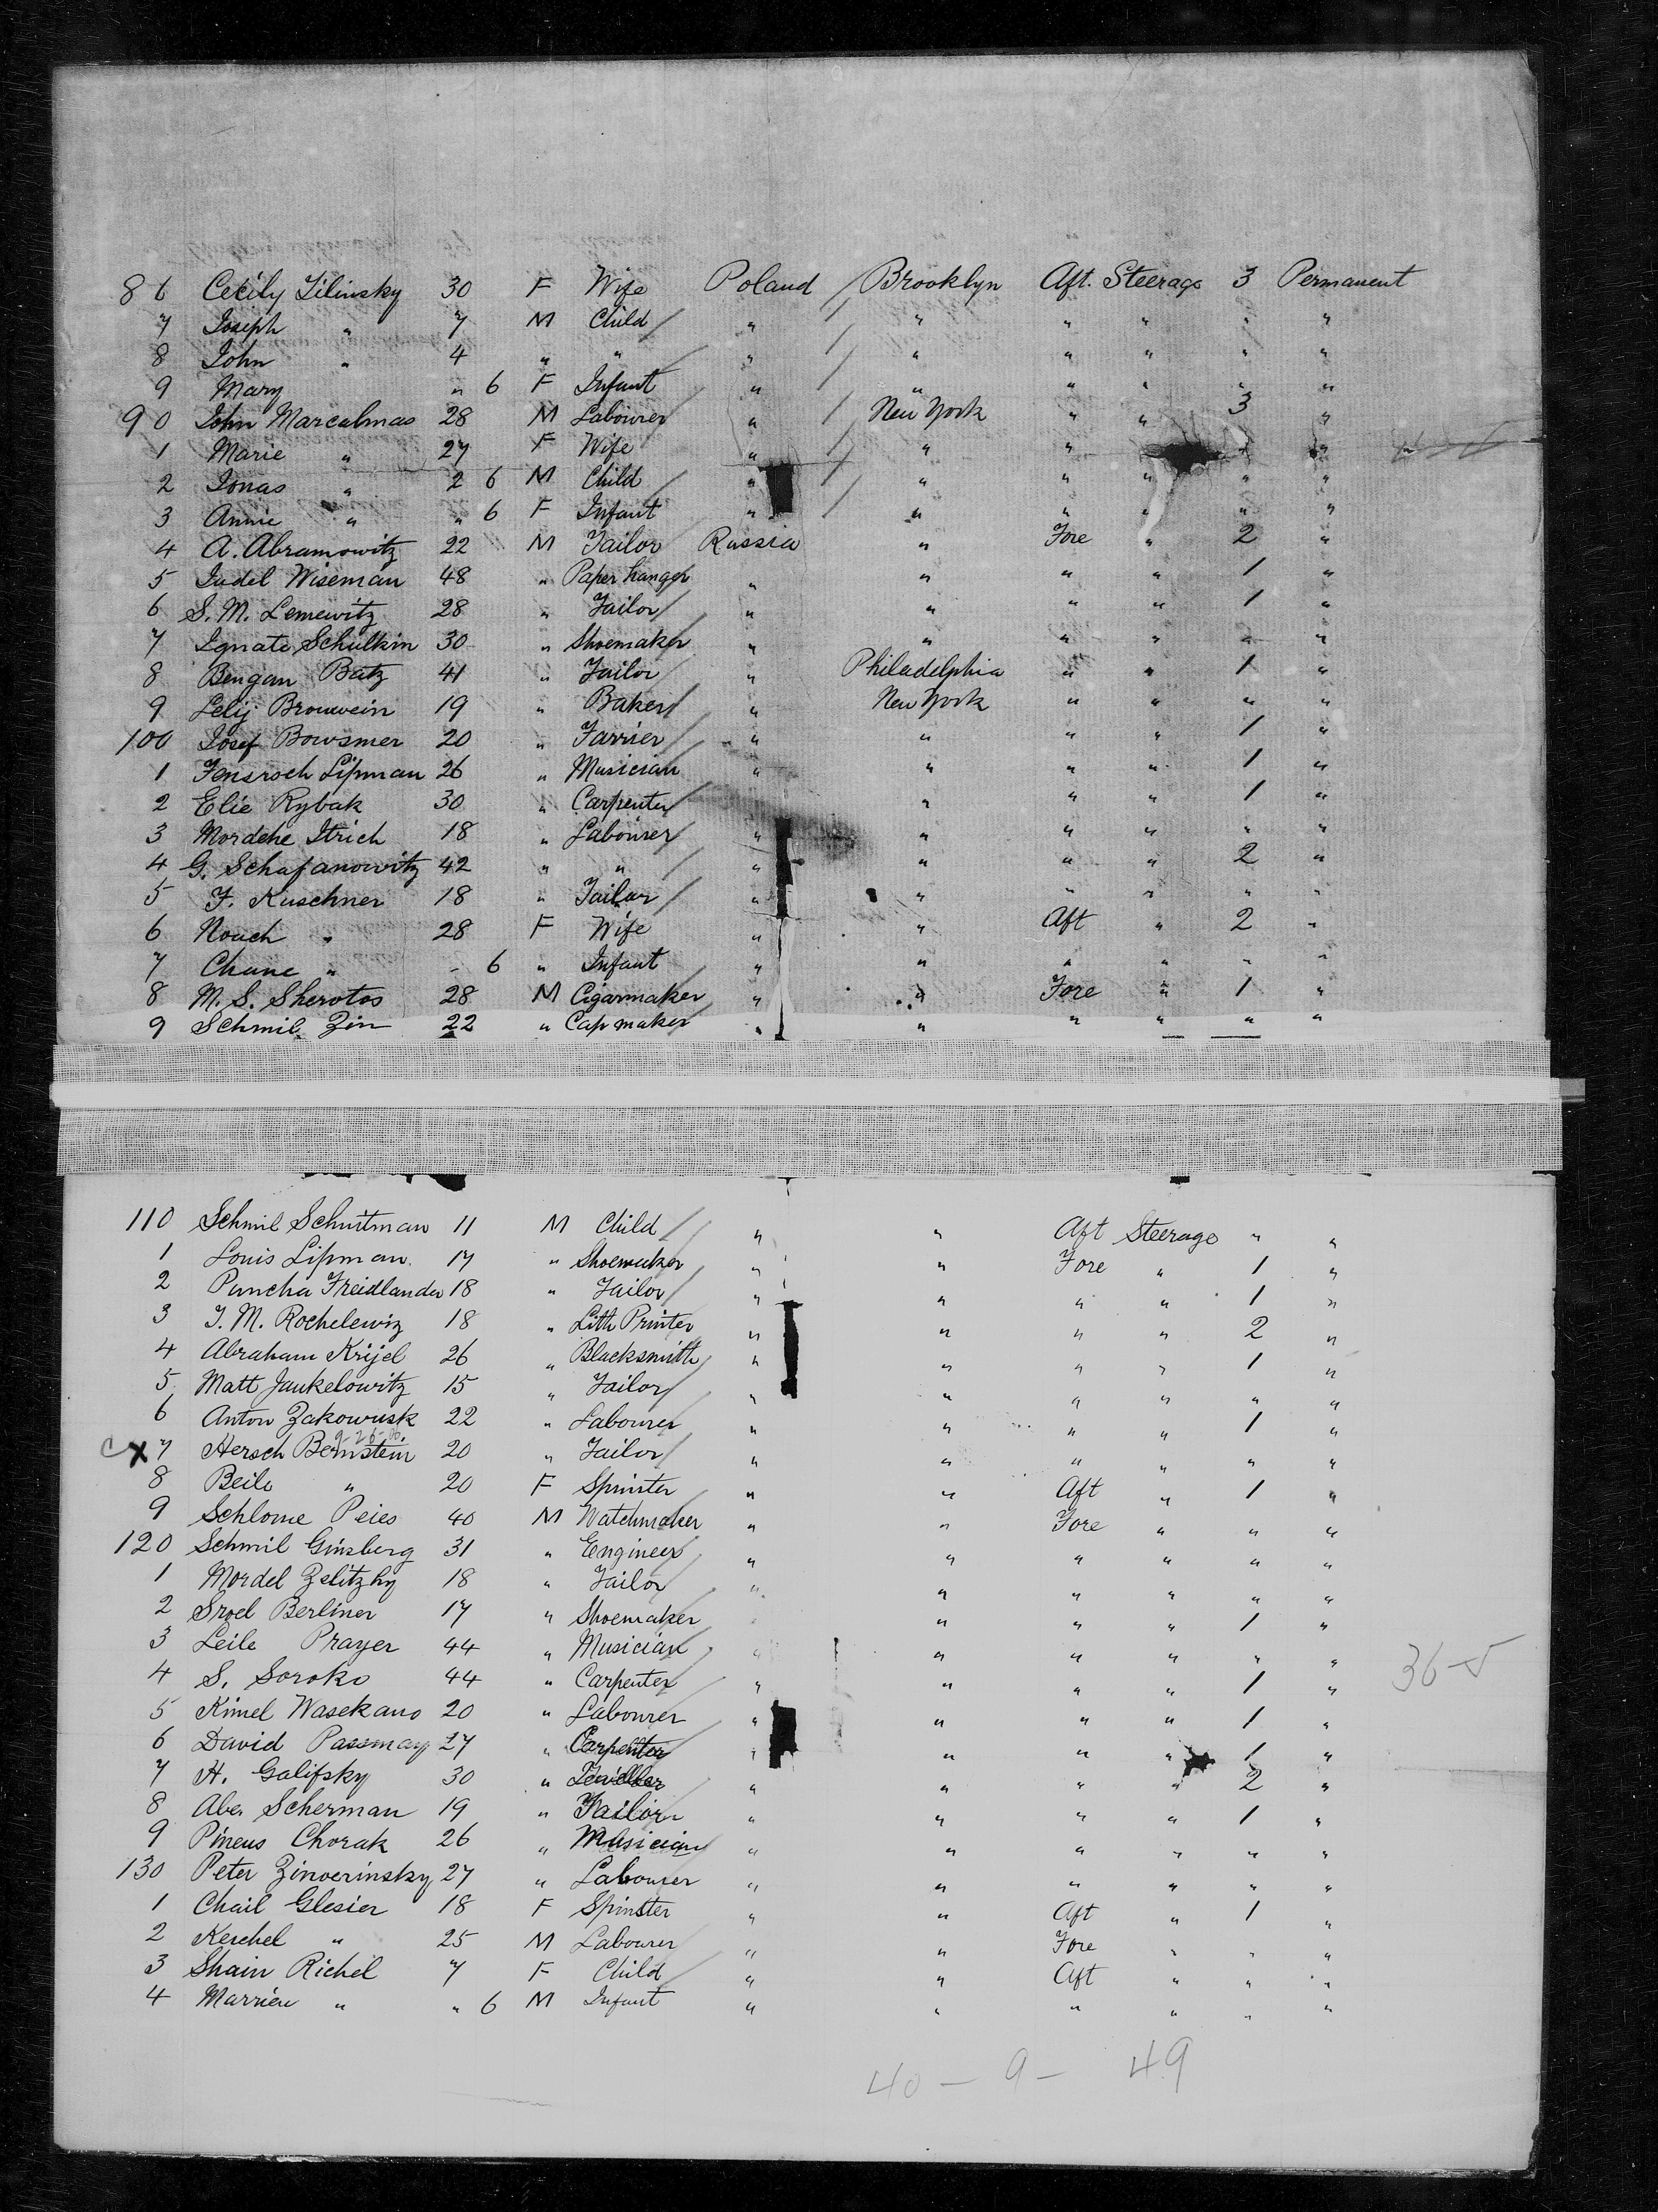 86 Cecily Zilinsky 30 F Wife Poland Brooklyn Aft. Steerage 3 Permanent
7 Joseph " 7 M Child " " " " " "
8 John " 4 " " " " " " " "
9 Mary " 6 F Infant " " " " " "
90 John Marcalmas 28 M Labourer " New York " " 3 "
1 Marie " 27 F Wife " " " "
2 Jonas " 2 6 M Child " " " " " "
3 Annie " " 6 F Infant " " " " " "
4 A. Abramowitz 22 M Tailor Russia " Fore " 2 "
5 Judel Wiseman 48 " Paper hanger " " " " 1 "
6 S. M. Lemewitz 28 " Tailor " " " " 1 "
7 Ignate Schulkin 30 " Shoemaker " " " " " "
8 Bengam Batz 41 " Tailor " Philadelphia " " 1 "
9 Brouwein 19 " Baker " New York " " " "
100 Josef Bowsmer 20 " Farrier " " " " 1 "
1 Lipman 26 " Musician " " " " 1 "
2 Elie Rybak 30 " Carpenter " " " " 1 "
3 Mordche Itrich 18 " Labourer " " " " " "
4 G. Schafanowitz 42 " " " " " " 2 "
5 F. Kuschner 18 " Tailor " " " " " "
6 Noach " 28 F Wife " " Aft " 2 "
7 Chane " - 6 " Infant " " " " " "
8 M. S. Sherotos 28 M Cigarmaker " " Fore " 1 "
9 Schmil Zin 22 " Cap maker " " " " " "
110 Schmil Schustman 11 M Child " " Aft Steerage " "
1 Louis Lipman. 17 " Shoemaker " " Fore " 1 "
2 Puncha Freidlander 18 " Tailor " " " " 1 "
3 J. M. Rochelewiz 18 " Lith Printer " " " " 2 "
4 Abraham Krijel 26 " Blacksmith " " " " 1 "
5 Matt Jankelowitz 15 " Tailor " " " " " "
6 Anton Zakowusk 22 " Labourer " " " " 1 "
9-26-06
cx 7 Hersch Bernstein 20 " Tailor " " " " " "
8 Beile " 20 F Spinster " " Aft " 1 "
9 Schlome Peies 40 M Watchmaker " " Fore " " "
120 Schmil Ginsberg 31 " Engineer " " " " " "
1 Mordel Zelitzky 18 " Tailor " " " " " "
2 Sroel Berliner 17 " Shoemaker " " " 1 "
3 Leile Prayer 44 " Musician " " " " " "
4 S. Soroko 44 " Carpenter " " " " 1 "
36
5 Kimel Wasekano 20 " Labourer " " " " 1 "
6 David Passmay 27 " Carpenter " " " " 1 "
7 H. Galifsky 30 " " " " " 2 "
8 Abe Scherman 19 " Tailor " " " " 1 "
9 Pineus Chorak 26 " Musician " " " " " "
130 Peter Zinoerinsky 27 " Labourer " " " " " "
1 Chail Glesier 18 F Spinster " " Aft " 1 "
2 Keschel " 25 M Labourer " " Fore " " "
3 Shain Richel 7 F Child " " Aft " " "
4 " " 6 M Infant " " " " " "
40 - 9 - 49